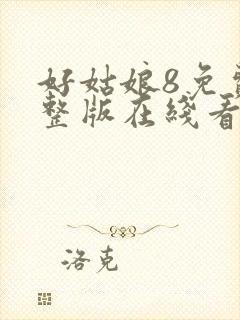 好姑娘8免费
整版在线看
洛克